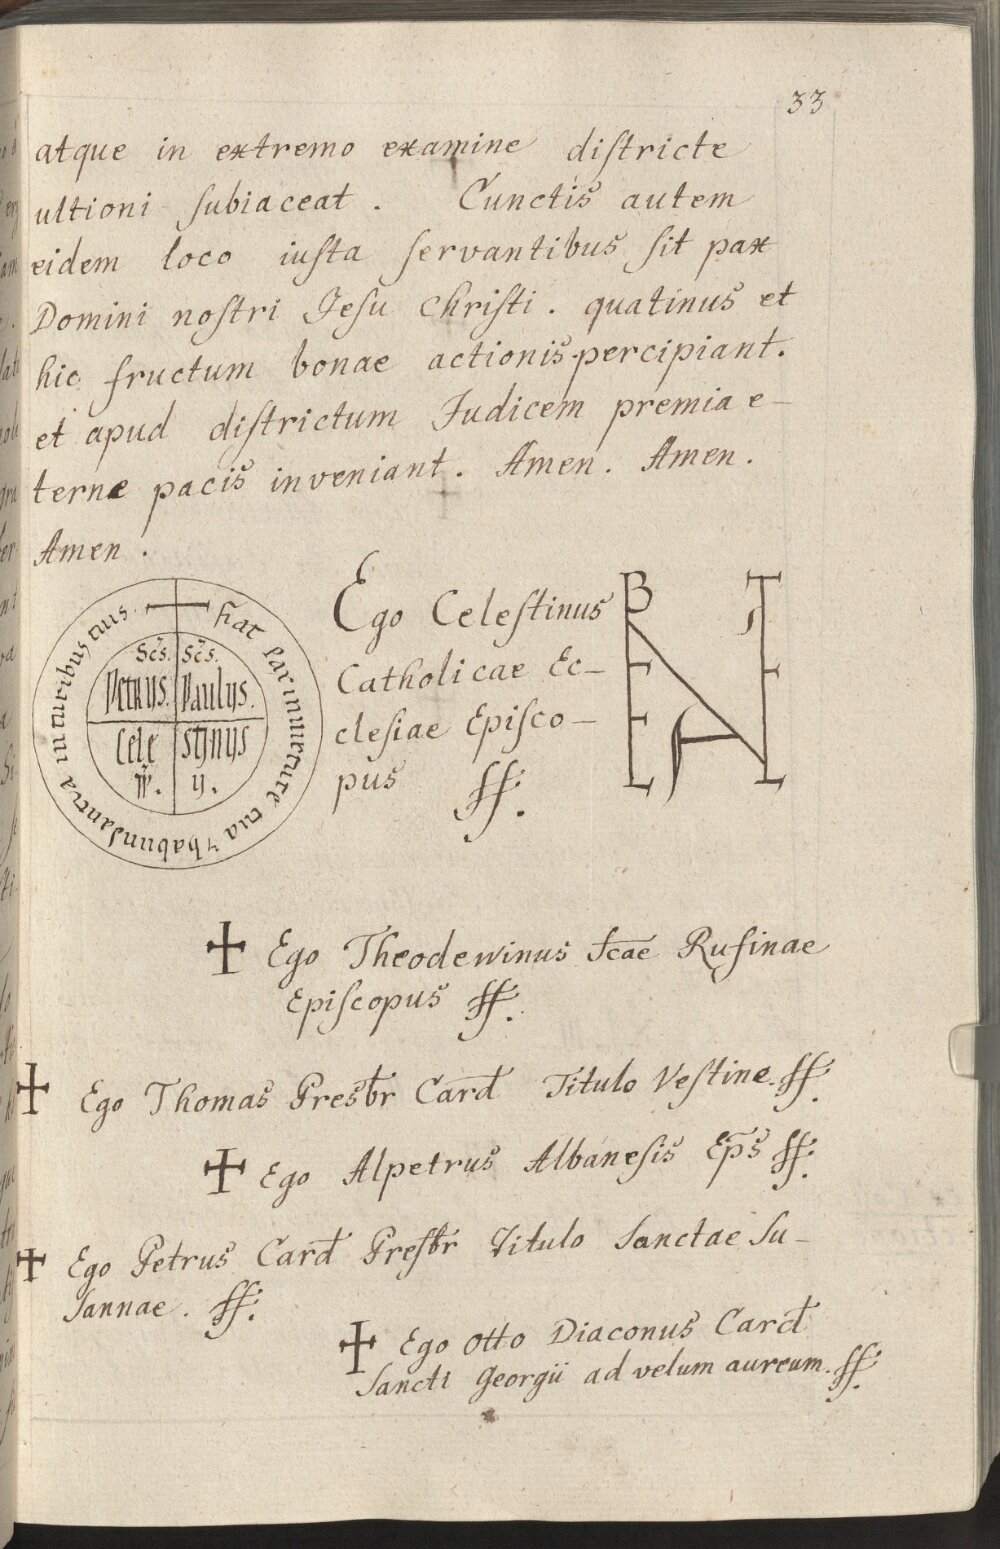 33
atque in extremo examine diſtricte
ultioni ſubiaceat . Cunctis autem
eidem loco iuſta ſervantibus ſit pax
Domini noſtri Jeſu Chriſti . quatinus et
hic fructum bonae actionis percipiant.
et apud diſtrictum Judicem premia e-
terne pacis inveniant . Amen . Amen .
Amen .
fiat pax in uirtute tua ⁊ habundantia in turribus tuis
Sc̄s. Sc̄s.
Petrus. Paulus.
Cele stinus
pp̄. ij.
Ego Celeſtinus
Catholicae Ec-
cleſiae Epiſco-
pus ſſ.
BENE VALETE
✠ Ego Theodewinus Scāe Rufinae
Epiſcopus ſſ.
✠ Ego Thomas Presb̄r Card̄ Titulo Veſtine. ſſ.
✠ Ego Alpetrus Albaneſis Ep̄s ſſ.
✠ Ego Petrus Card̄ Preſb̄r Titulo Sanctae Su-
sannae . ſſ.
✠ Ego Otto Diaconus Card̄
Sancti Georgii ad velum aureum. ſſ.